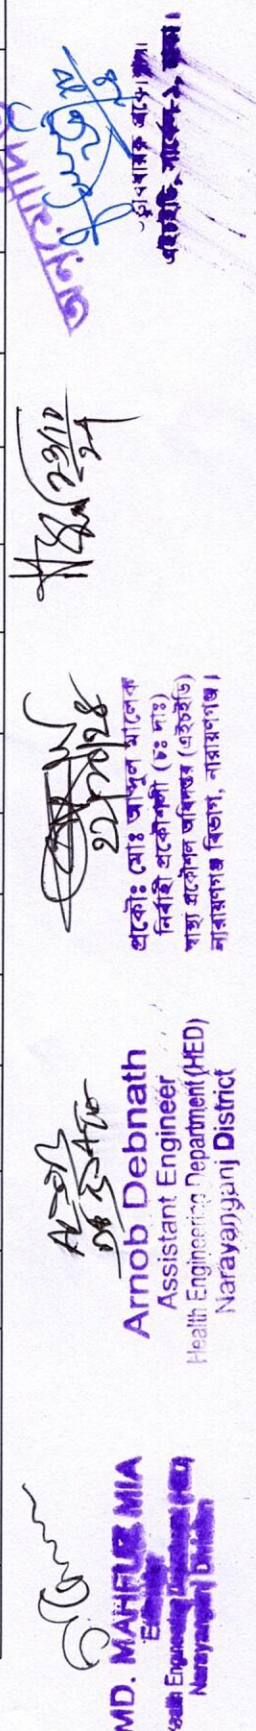 MD. MAHFUZ MIA
Estimator
Health Engineering Department (HED)
Narayanganj Division
Arnob Debnath
Assistant Engineer
Health Engineering Department (HED)
Narayanganj District
২২/১০/২৪
প্রকৌঃ মোঃ আব্দুল মালেক
নির্বাহী প্রকৌশলী (চঃ দাঃ)
স্বাস্থ্য প্রকৌশল অধিদপ্তর (এইচইডি)
নারায়ণগঞ্জ বিভাগ, নারায়ণগঞ্জ।
23/10/24
তত্ত্বাবধায়ক প্রকৌশলী
এইচইডি, সার্কেল-১, ঢাকা।